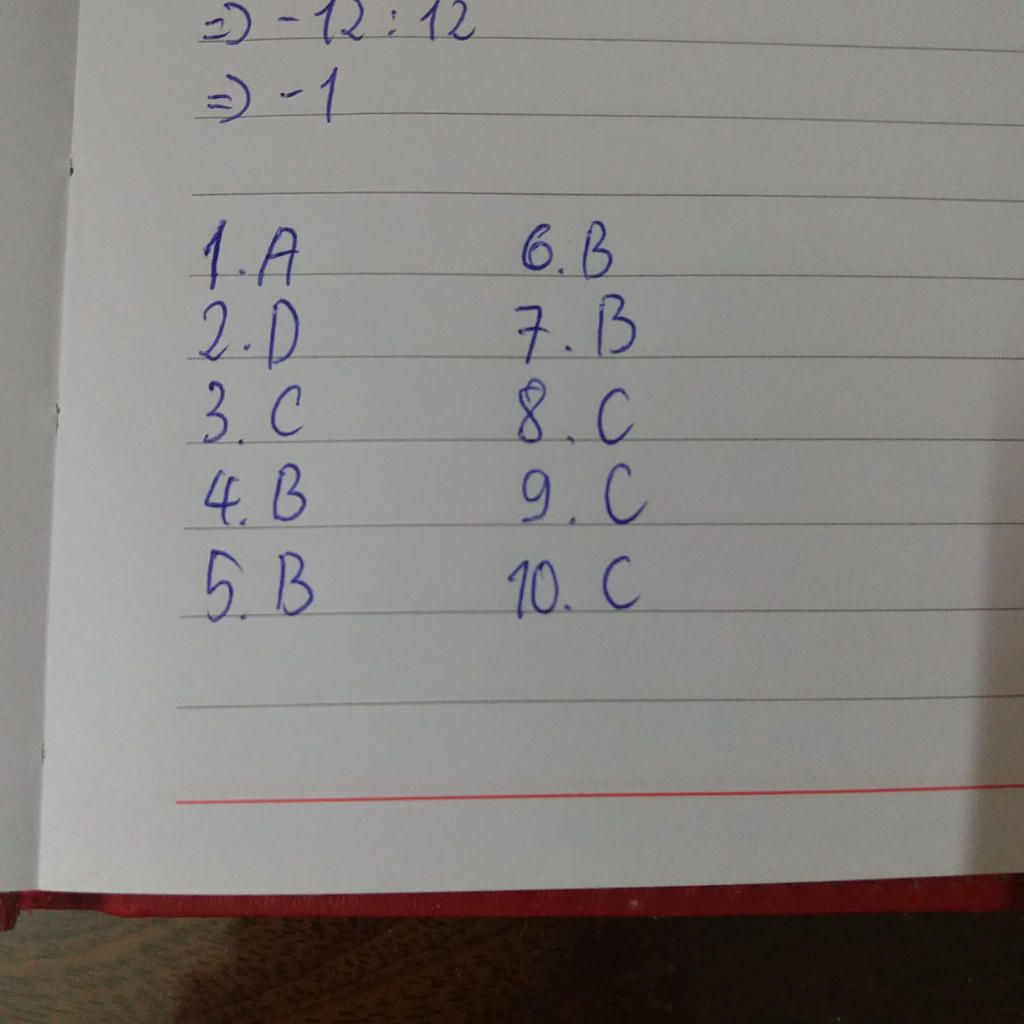 => -12 : 12
=> -1
1. A 6. B
2. D 7. B
3. C 8. C
4. B 9. C
5. B 10. C